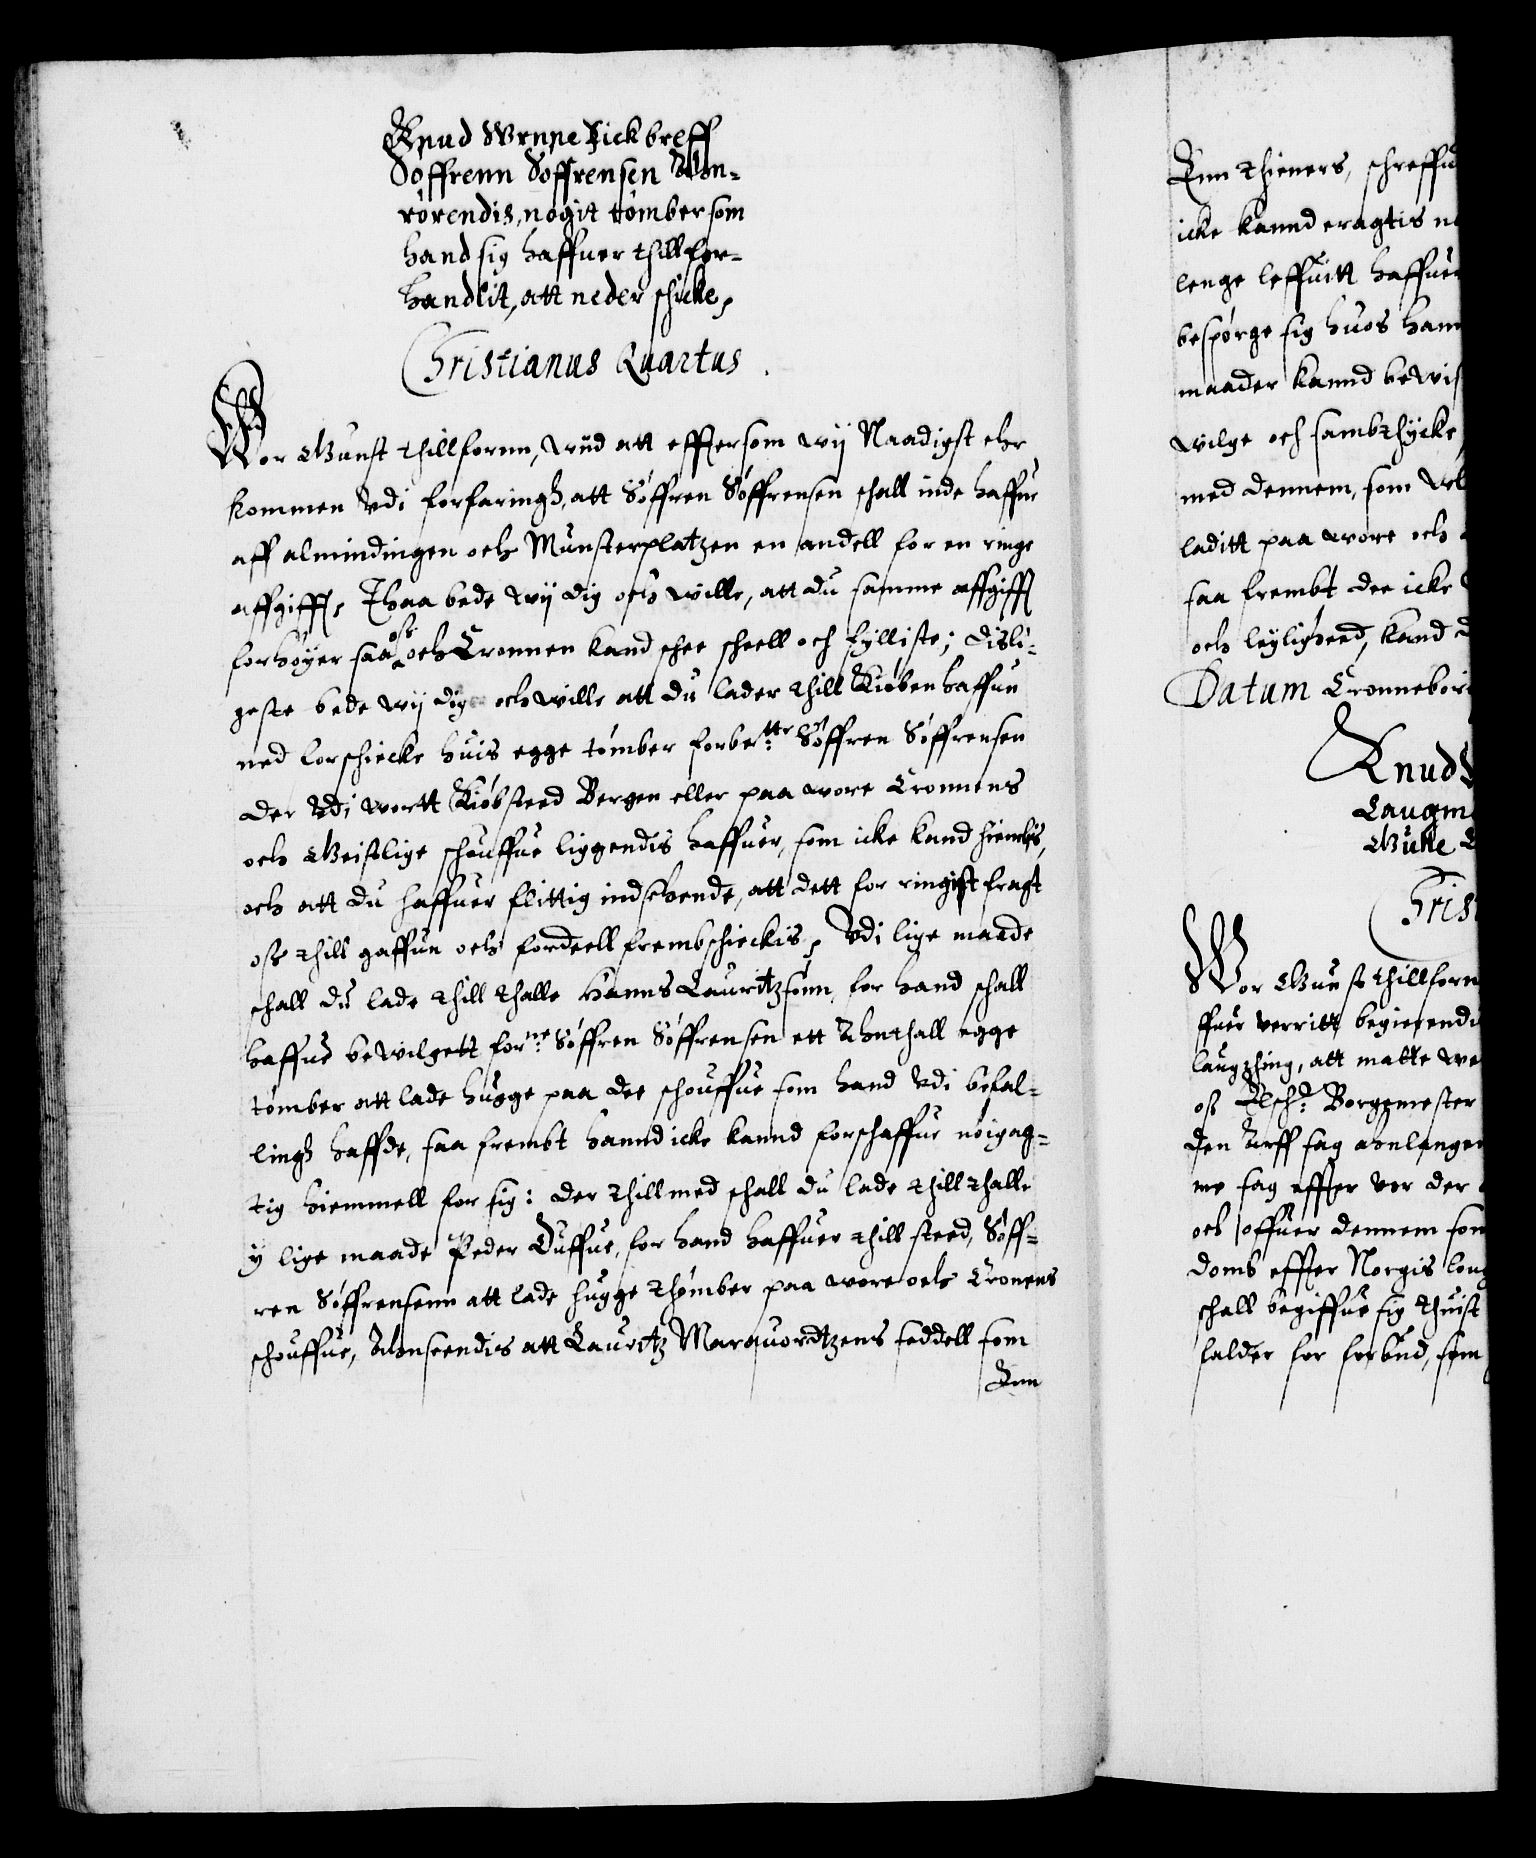 Knud Wrnne Fick breff
Søffrenn Søffrensen Ahn-
rørendis, nogit tømber som
hand sig haffuer thill for-
handlit, att neder schicke,
Christianus Quartus.
Wor Gunst thillfornn, Wiid att efftersom wij Naadigst ehr
kommen Udi forfaringh, att Søffren Søffrensen schall inde haffue
aff almindingen och Munsterplatzen en andell for en ringe
affgifft, Thaa bede wij dig och wille, att du samme affgifft
forhøyer saa oss och Cronnen kand schee scheell och fylliste; Disli-
geste bede wij dig och wille att du lader thill Kiøbenhaffun
ned forschicke huis egge tømber forbe:tte Søffren Søffrensen
der Udi wortt Kiøbsteed Bergen eller paa wore Cronnens
och Geistlige schouffue liggendis haffuer, som icke kand hiemlis,
och att du haffuer flittig indseende, att dett for ringist fragt
oss thill gaffun och fordeell frembschickis, Udi lige maade
schall du lade thill thalle Hanns Lauritzsønn, for hand schall
haffue bewilgett for:ne Søffren Søffrensen ett Ahnthall egge
tømber att lade hugge paa dee schouffue som hand Udi befal-
lingh haffde, saa frembt hannd icke kannd forschaffue nøigag-
tig hiemmell for sig: der thill med schall du lade thill thalle
y lige maade Peder Duffue, for hand haffuer thill steed, Søff-
ren Søffrensenn att lade hugge thømber paa wore och Cronens
schouffue, Ahnseendis att Lauritz Marquordtzens seddell som
Enn
Enn thieners, schreffu
icke kannd eragtis n
lenge leffuitt haffue
bespørge sig huos ham
maader kannd bewis
wilge och sambthycke,
med dennem, som
laditt paa wore och
saa frembt dee icke
och leylighed, kand
Datum Cronnebor
Knud
Laugm
Gulle
Christ
Wor Gunst thillforn
ffuer berritt begierendi
laugthing, att matte we
oss Elsch: Borgemester
den Arff sag ahnlangen
me sag effter vor der
och offuer dennem som
domb effter Norgis loug
schall begiffue sig thuist
falder for forbud, som